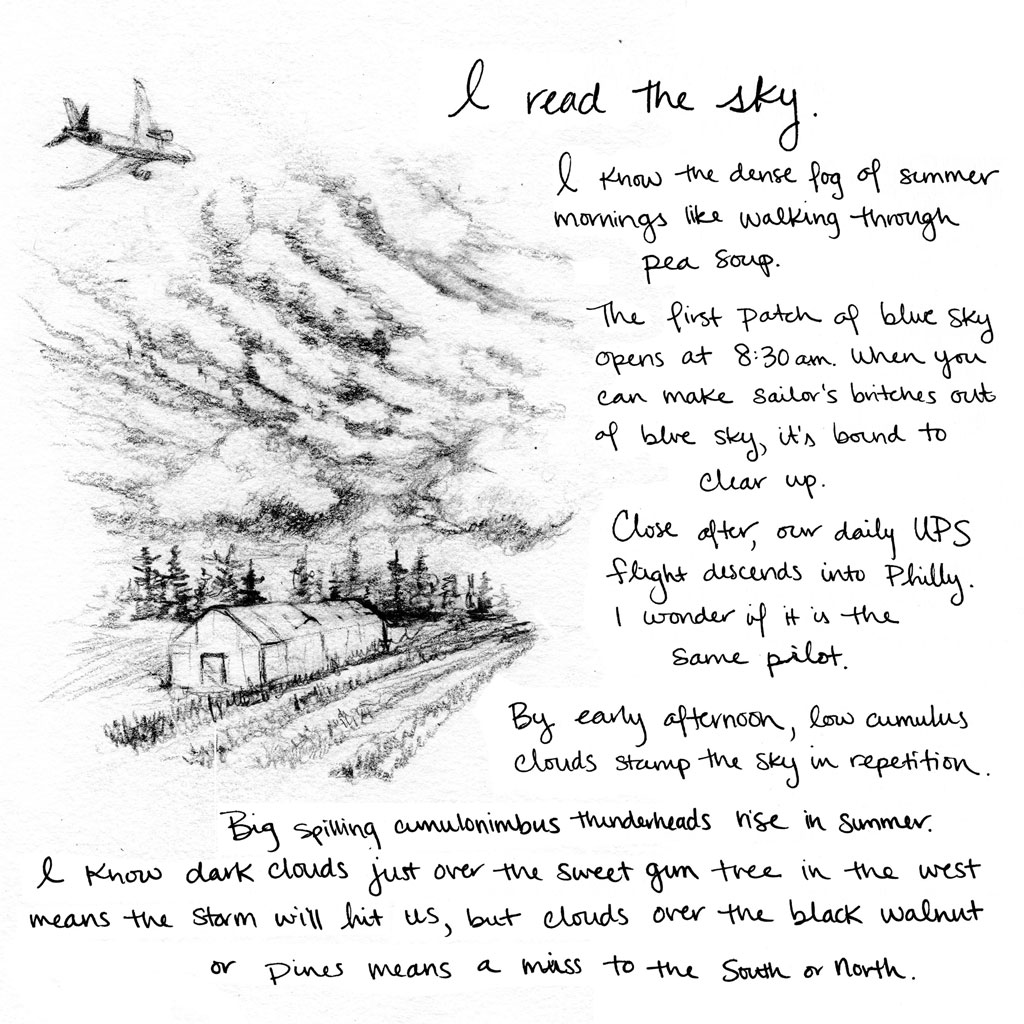 I read the sky.
I know the dense fog of summer
mornings like walking through
pea soup.
The first patch of blue sky
opens at 8:30am. When you
can make sailor's britches out
of blue sky, it's bound to
clear up.
Close after, our daily UPS
flight descends into Philly.
I wonder if it is the
same pilot.
By early afternoon, low cumulus
clouds stamp the sky in repetition.
Big spilling cumulonimbus thunderheads rise in summer.
I know dark clouds just over the sweet gum tree in the west
means the storm will hit us, but clouds over the black walnut
or pines means a miss to the South or North.